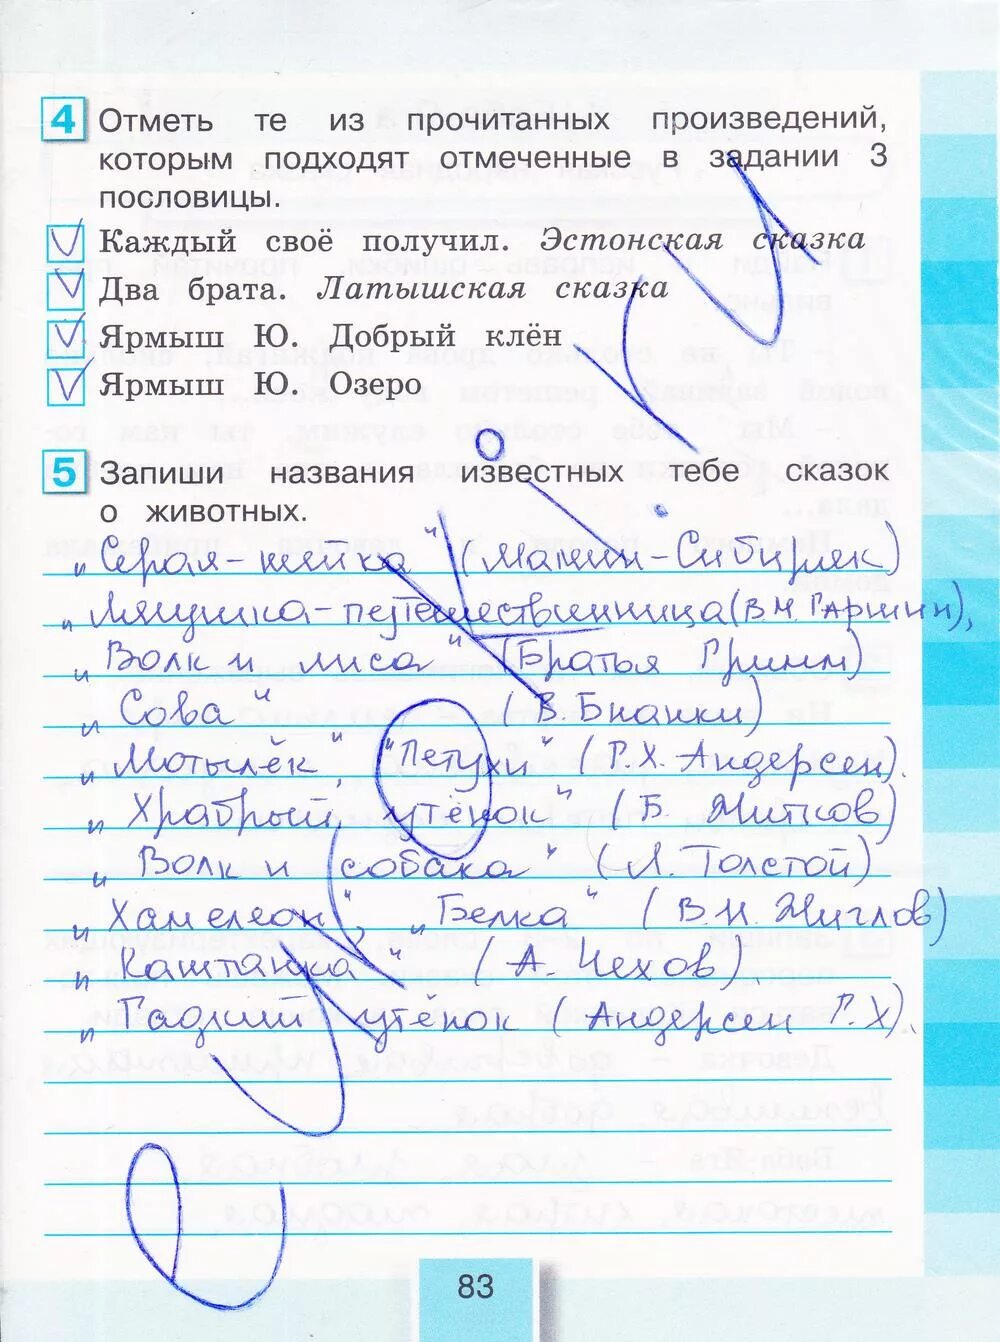 4 Отметь те из прочитанных произведений,
которым подходят отмеченные в задании 3
пословицы.
Каждый своё получил. Эстонская сказка
Два брата. Латышская сказка
Ярмыш Ю. Добрый клён
Ярмыш Ю. Озеро
5 Запиши названия известных тебе сказок
о животных.
„Серая-шейка" (Мамин-Сибиряк)
„Лягушка-путешественница (В.М. Гаршин),
„Волк и лиса" (Братья Гримм)
„Сова" (В. Бианки)
„Мотылёк", "Петухи" (Г.Х. Андерсен).
„Храбрый утёнок" (Б. Житков)
„Волк и собака" (Л. Толстой)
„Хамелеон", „Белка" (В.И. Жиглов)
„Каштанка" (А. Чехов)
„Гадкий утёнок (Андерсен Г.Х).
83